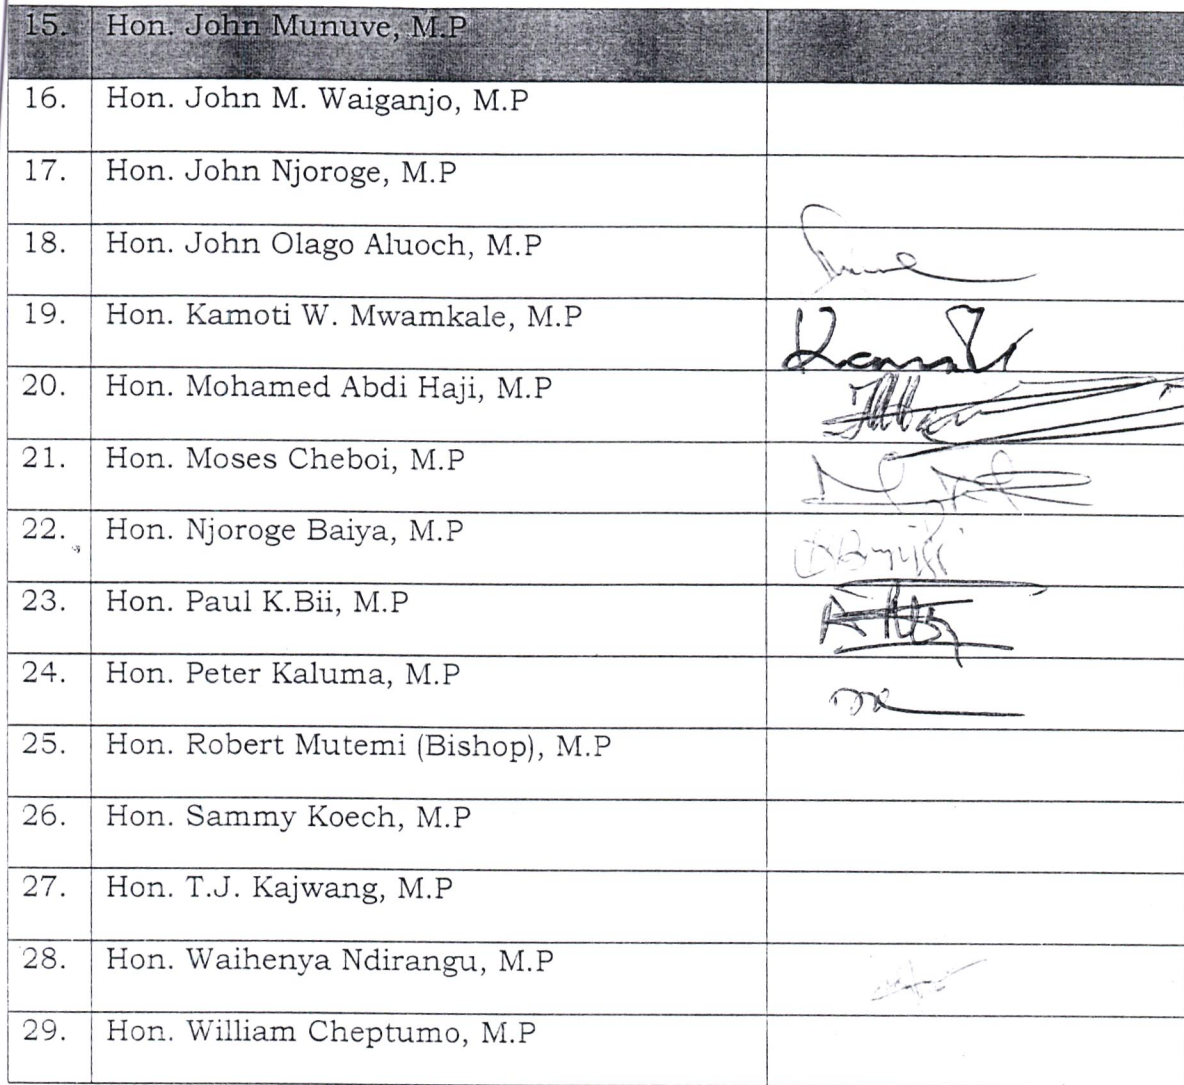 15. Hon. John Munuve, M.P
16. Hon. John M. Waiganjo, M.P
17. Hon. John Njoroge, M.P
18. Hon. John Olago Aluoch, M.P
19. Hon. Kamoti W. Mwamkale, M.P
20. Hon. Mohamed Abdi Haji, M.P
21. Hon. Moses Cheboi, M.P
22. Hon. Njoroge Baiya, M.P
23. Hon. Paul K.Bii, M.P
24. Hon. Peter Kaluma, M.P
25. Hon. Robert Mutemi (Bishop), M.P
26. Hon. Sammy Koech, M.P
27. Hon. T.J. Kajwang, M.P
28. Hon. Waihenya Ndirangu, M.P
29. Hon. William Cheptumo, M.P